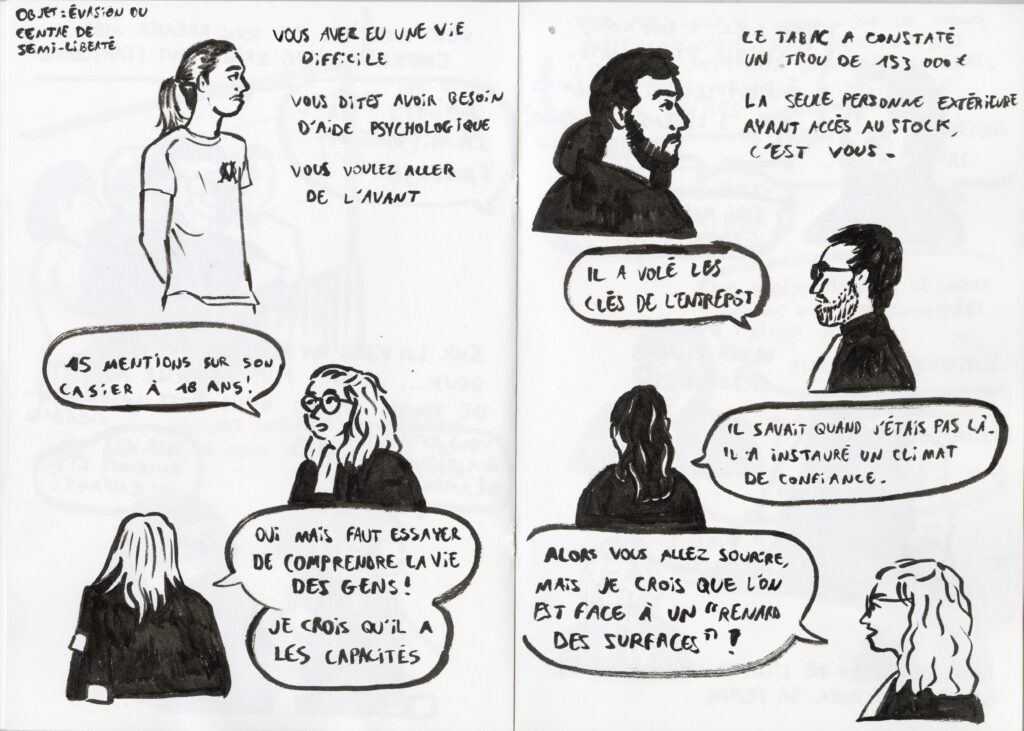 OBJET : ÉVASION DU
CENTRE DE
SEMI-LIBERTÉ
VOUS AVEZ EU UNE VIE
DIFFICILE
VOUS DITES AVOIR BESOIN
D'AIDE PSYCHOLOGIQUE
VOUS VOULEZ ALLER
DE L'AVANT
15 MENTIONS SUR SON
CASIER À 18 ANS!
OUI MAIS FAUT ESSAYER
DE COMPRENDRE LA VIE
DES GENS!
JE CROIS QU'IL A
LES CAPACITÉS
LE TABAC A CONSTATÉ
UN TROU DE 153 000 €
LA SEULE PERSONNE EXTÉRIEURE
AYANT ACCÈS AU STOCK
C'EST VOUS.
IL A VOLÉ LES
CLÉS DE L'ENTREPÔT
IL SAVAIT QUAND J'ÉTAIS PAS LÀ.
IL A INSTAURÉ UN CLIMAT
DE CONFIANCE.
ALORS VOUS ALLEZ SOURIRE,
MAIS JE CROIS QUE L'ON
EST FACE À UN "RENARD
DES SURFACES" !